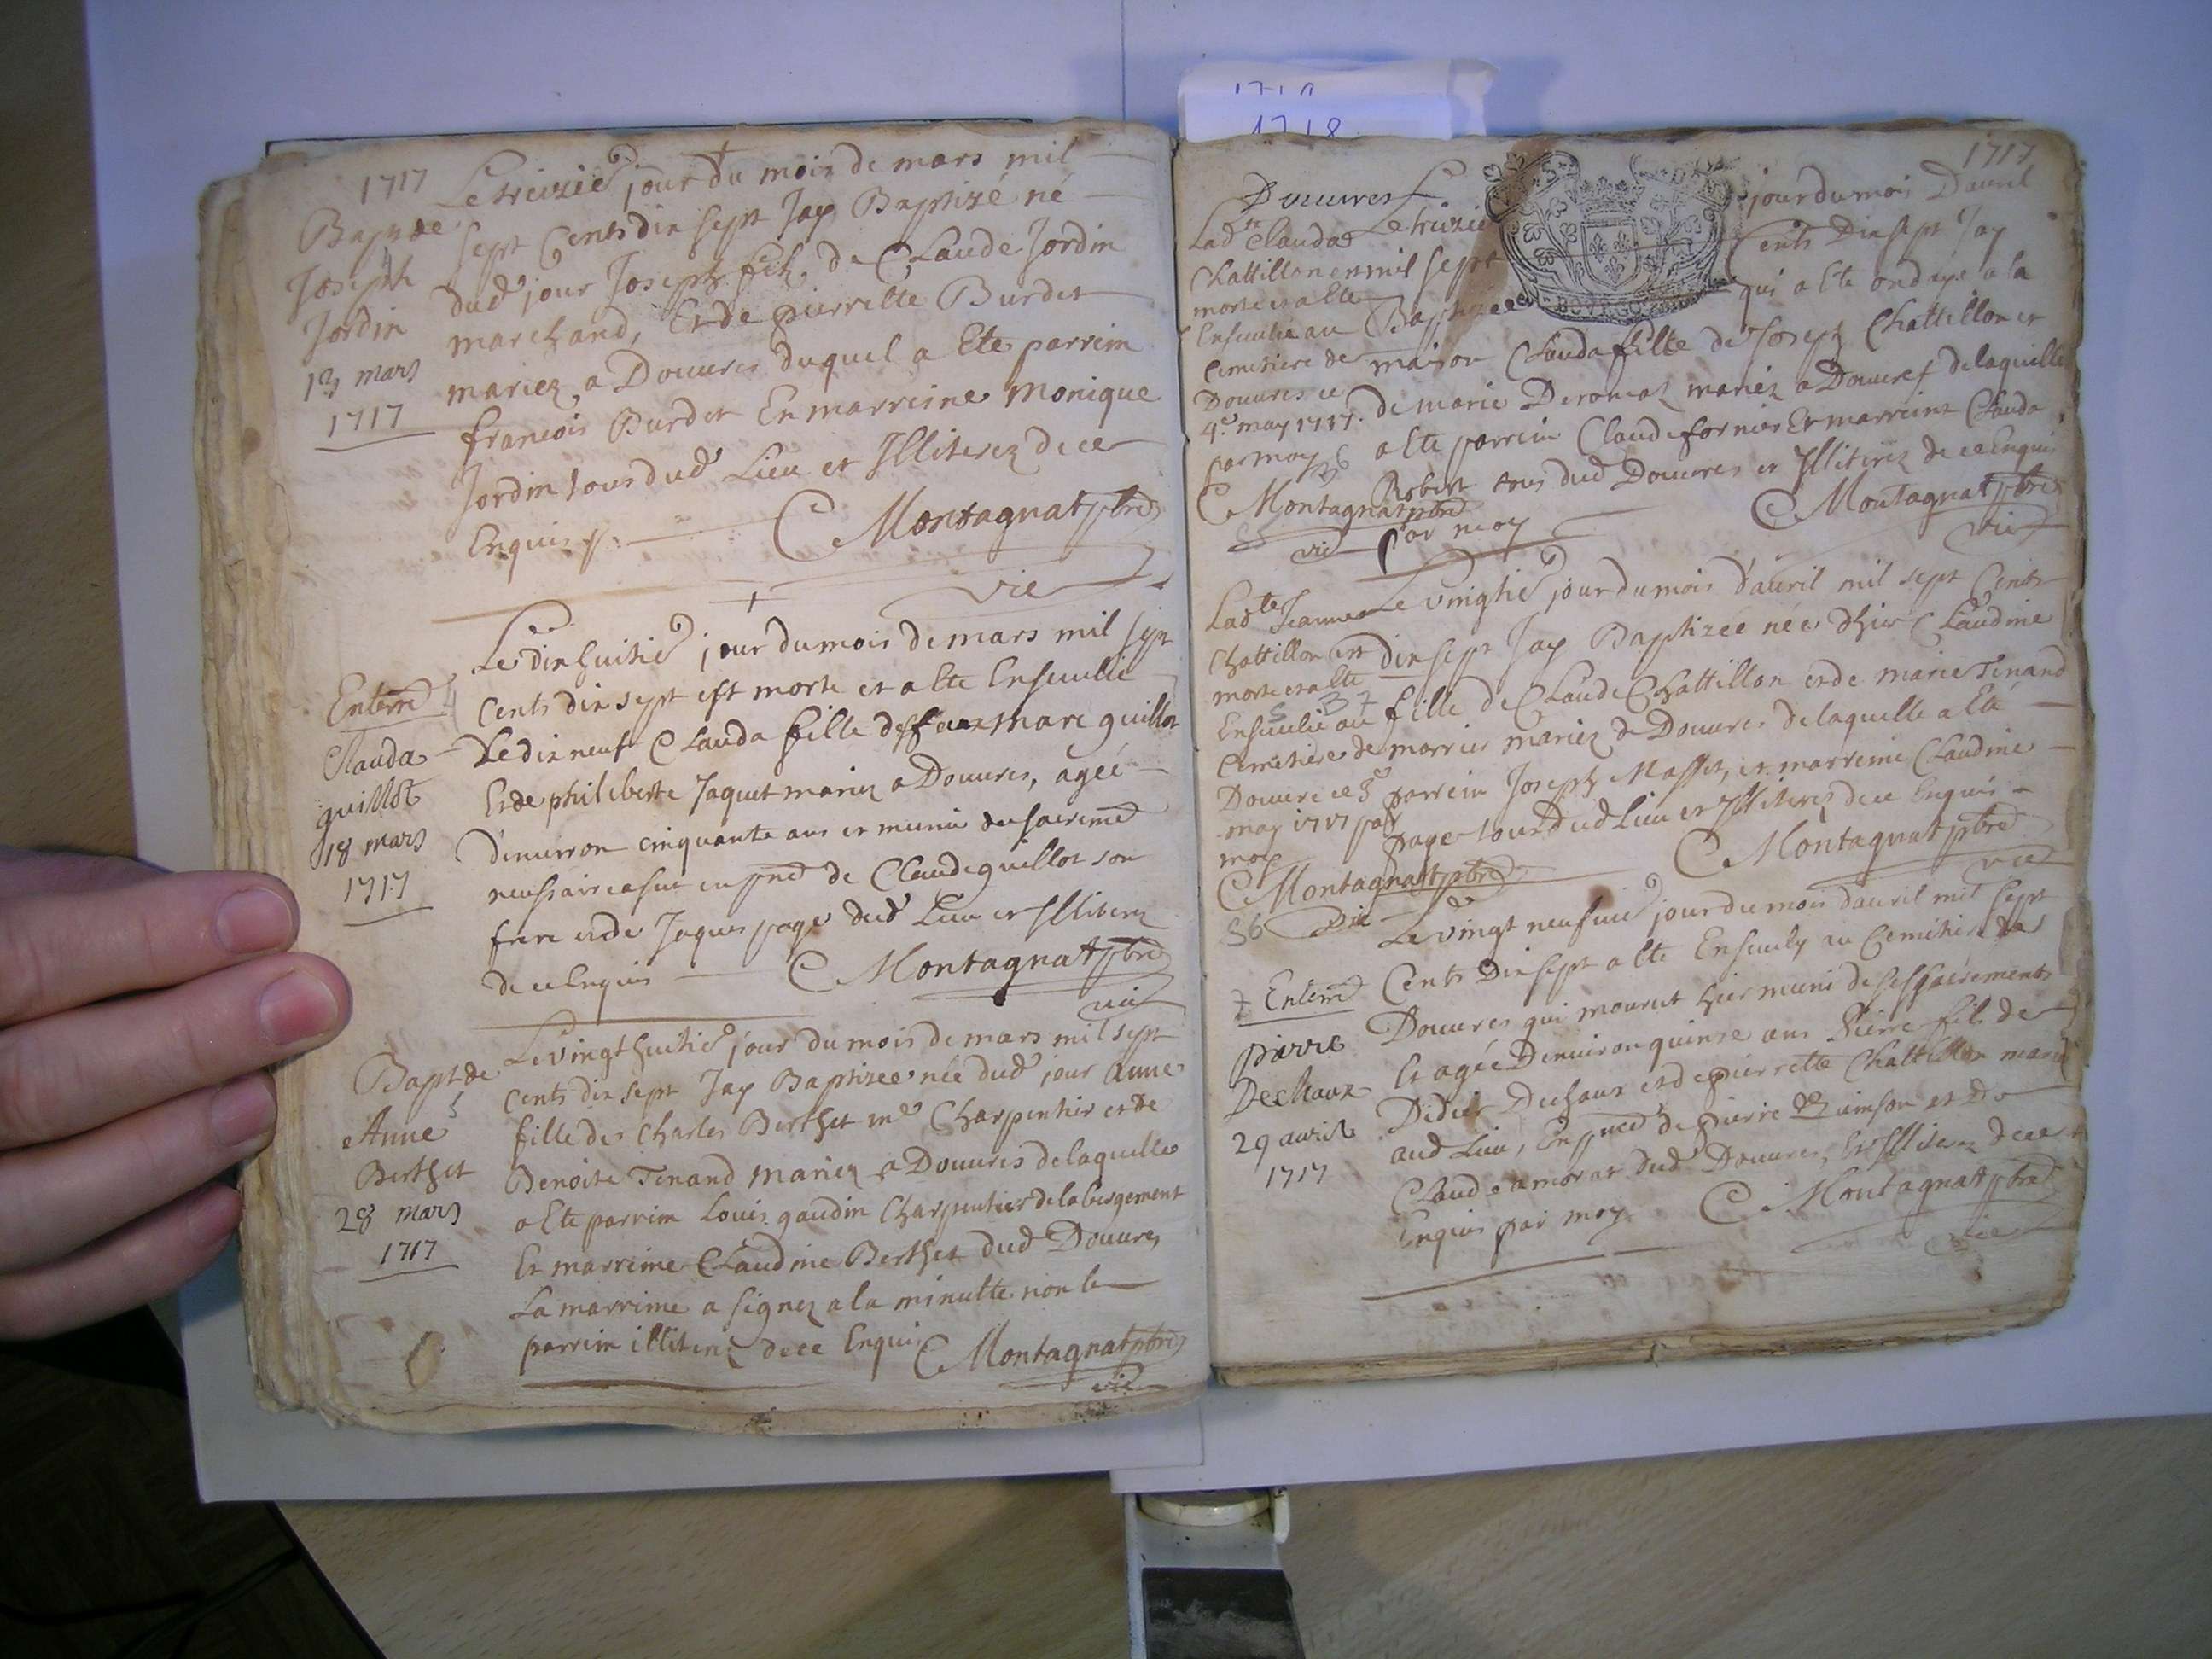 1717
Le treizie jour du mois de mars mil
sept Cents dix sept Jay Baptizé né
dud jour Joseph fils de Claude Jordin
marchand, Et de pierrette Burdet
mariez a Douures duquel a Ete parrein
francois Burdet En marreine Monique
Jordin tous dud Lieu et Illiterez de ce
Enquis
C Montagnat ptre
vic
Bapt de
Joseph
Jordin
13 mars
1717
Le dix huitie jour du mois de mars mil sept
Cents dix sept est morte et a Ete Enseuelie
Le dix neuf Clauda fille deffeux Marc guillot
Et de philiberte Jaquet mariez a Douures, agée
denuiron cinquante ans et munie du sacremed
neussaire a sut en pned de Claude guillot son
frere et de Jaques page dud Lieu et Illiterez
de ce Enquis
C Montagnat ptre
vic
Enterre
Clauda
guillot
18 mars
1717
Le vingt huitie jour du mois de mars mil sept
cents dix sept Jay Baptizee née dud jour Anne
fille des Charles Berthet me Charpentier et de
Benoite Tenand Mariez a Douures de laquelle
a Ete parrein Louis gaudin Charpentier de labergement
Et marreine Claudine Berthet dud Douures
La marreine a signez a la minutte non le
parrein illiterez de ce Enquis C Montagnat ptre
vic
Bapt de
Anne
Berthet
28 mars
1717
1717
Douures
Le treizie jour du mois Dauril
mil sept Cents Dix sept Jay
Baptizee qui a Ete ondoyé a la
maison Clauda fille de Joseph Chattillon et
de marie Deromas mariez a Douures de laquelle
a Ete parrein Claude fornier Et marreine Clauda
Robert tous dud Douures et Illiterez de ce Enquis
par moy
C Montagnat ptre
vic
Lad te Clauda
Chattillon est
morte et a Ete
Enseuelie au
Cimetiere de
Douures ce
4e may 1717
par moy
C Montagnat ptre
vic
Le vingtie jour du mois d'auril mil sept Cents
dix sept Jay Baptizée née d'hier Claudine
fille de Claude Chattillon et de marie Tenand
morrier mariez de Douures de laquelle a Eté
parrein Joseph Masset, et marreine Claudine
page tous dud Lieu et Illiterez de ce Enquis
C Montagnat ptre
vic
Lad te Jeanne
Chattillon est
morte et a Ete
Enseuelie au
Cimetiere de
Douure ce 5e
may 1717 par
moy
C Montagnat ptre
vic
56
Le vingt neufuie jour du mois d'auril mil sept
Cents Dix sept a Ete Enseuely au Cemetiere de
Douures qui mourut hier muni de ses sacrements
Et agée Denuiron quinze ans Pierre fils de
Didier Dechaux et de pierrette Chattillon mariez
aud Lieu, En pned de pierre et de
Claude amorat dud Douures, Et Illiterez de ce
Enquis par moy
C Montagnat ptre
vic
Enterre
pierre
Dechaux
29 auril
1717
1718